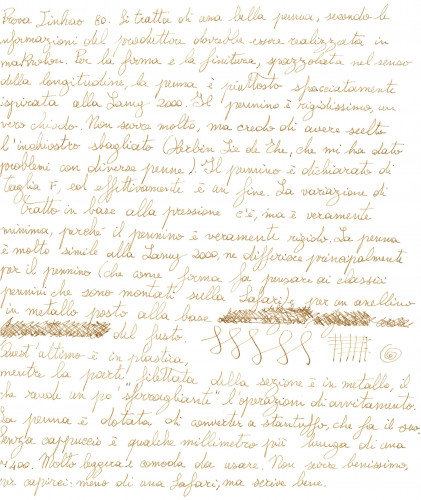 Prova Jinhao 80. Si tratta di una bella penna, secondo le
informazioni del produttore dovrebbe essere realizzata in
makrolon. Per la forma e la finitura, spazzolata nel senso
della longitudine, la penna è piuttosto spacciatamente
ispirata alla Lamy 2000. Il pennino è rigidissimo, un
vero chiodo. Non scorre molto, ma credo di avere scelto
l'inchiostro sbagliato (Herbin Lie de Thé, che mi ha dato
problemi con diverse penne). Il pennino è dichiarato di
taglia F, ed effettivamente è un fine. La variazione di
tratto in base alla pressione c'è, ma è veramente
minima, perché il pennino è veramente rigido. La penna
è molto simile alla Lamy 2000, ne differisce principalmente
per il pennino (che come forma fa pensare ai classici
pennini che sono montati sulla Safari), per un anellino
in metallo posto alla base
del fusto.
Quest'ultimo è in plastica,
mentre la parte filettata della sezione è in metallo, il
che rende un po' "sferragliante" l'operazione di avvitamento.
La penna è dotata di converter a stantuffo, che fa il suo.
Senza cappuccio è qualche millimetro più lunga di una
Molto leggera e comoda da usare. Non scorre benissimo,
per capirci: meno di una Safari, ma scrive bene.